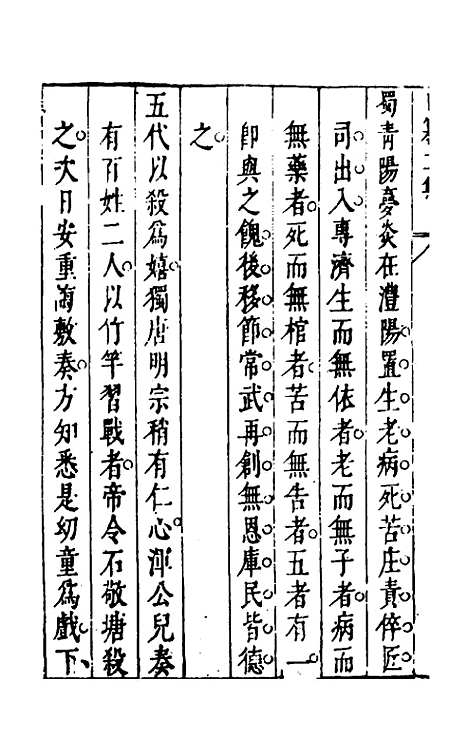 蜀青陽夢炎在澧陽置生老病死苦庄責倅匠
司出入專濟生而無依者老而無子者病而
無藥者死而無棺者苦而無告者五者有一
卽與之餽後移節常武再創無恩庫民皆德
之
五代以殺為嬉獨唐明宗稍有仁心渾公兒奏
有百姓二人以竹竿習戰者帝令石敬塘殺
之次日安重誨敷奏方知悉是幼童為戲下